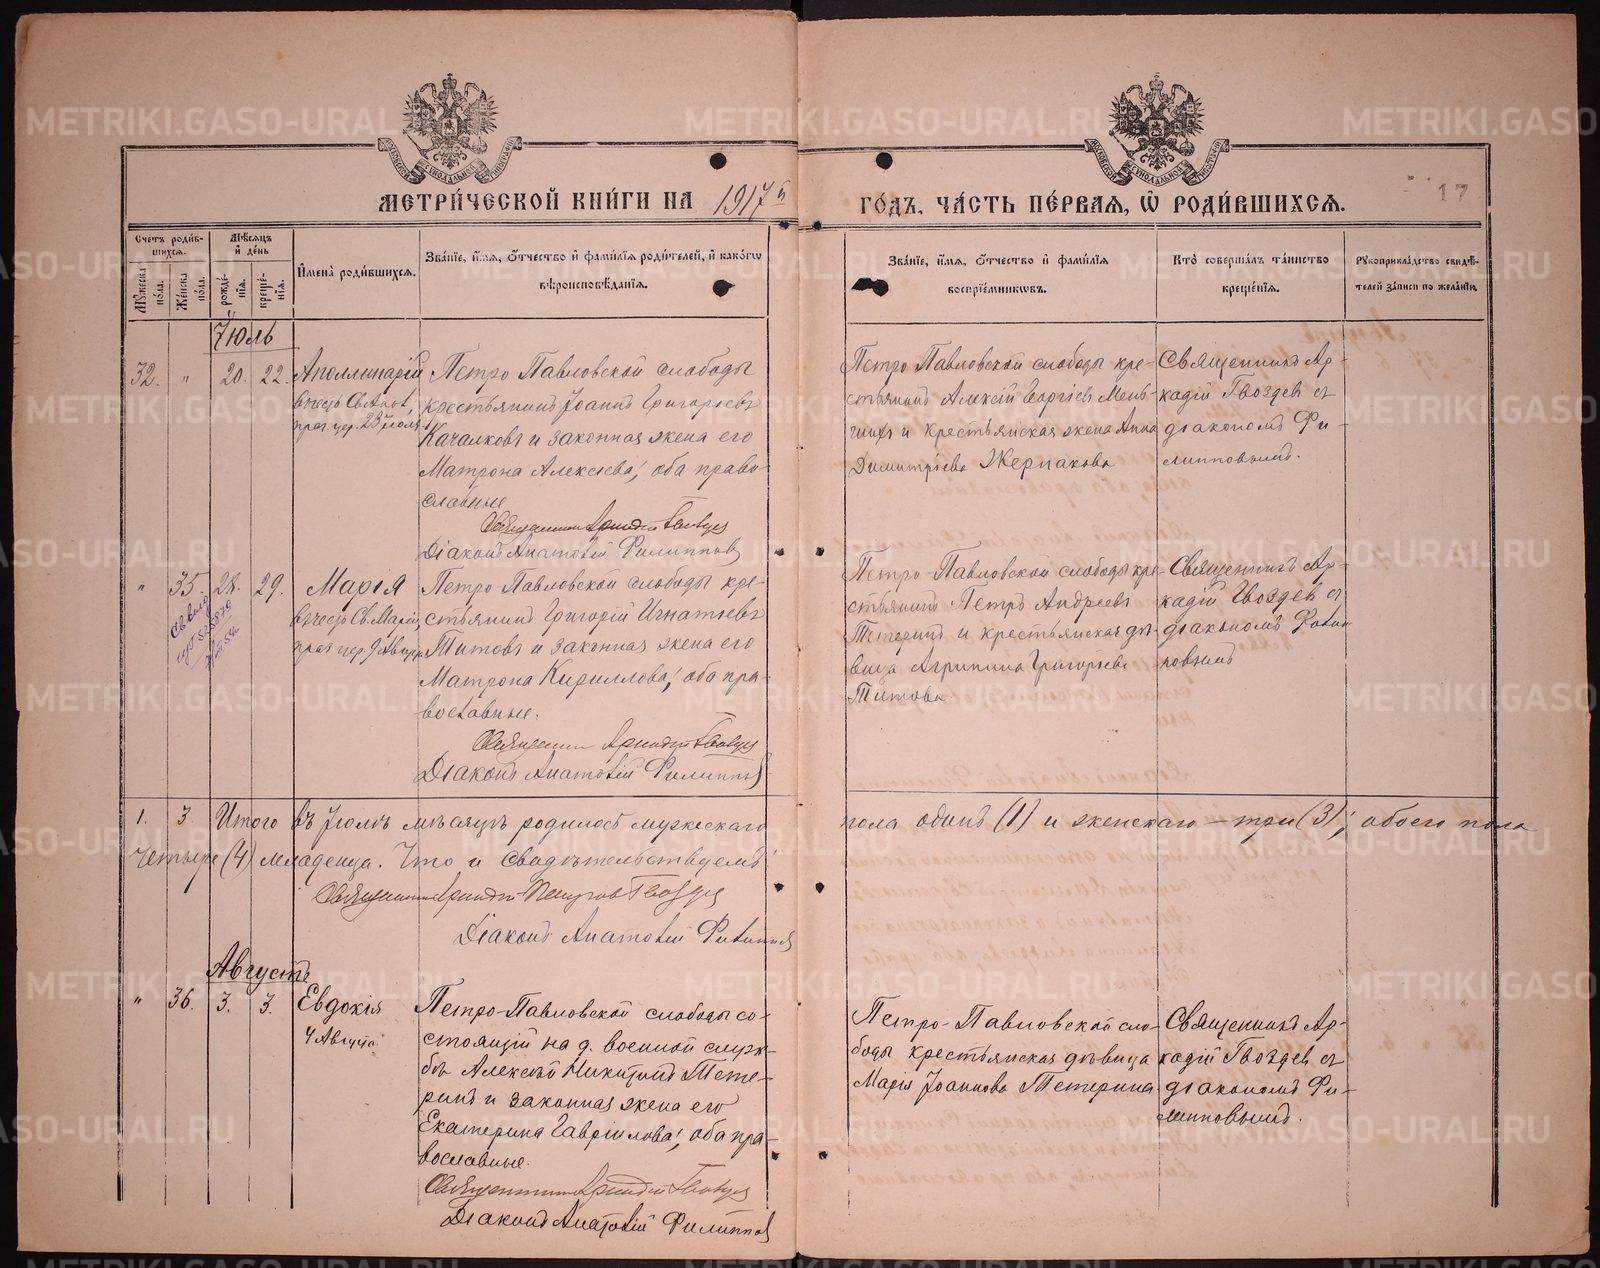 МЕТРИ́ЧЕСКОЙ КНИ́ГИ НА 1917й ГО́ДЪ, ЧА́СТЬ ПЕ́РВАЯ, Ѡ РОДИ́ВШИХСЯ.
17
Счетъ роди́вшихся.
Мѣ́сяцъ и де́нь
Му́жеска по́ла.
Же́нска по́ла.
рожде́нїя.
креще́нїя.
И҆мена̀ роди́вшихся.
Зва́нїе, и҆́мя, ѻ҆́тчество и҆ фами́лїя роди́телей, и҆ како́гѡ
вѣроисповѣ́данїя.
Зва́нїе, и҆́мя, ѻ҆́тчество и҆ фами́лїя
воспрїе́мниковъ.
Кто̀ соверша́лъ та́инство
креще́нїя.
Рꙋкоприкла́дство свидѣ́-
телей за́писи по жела́нїю.
Іюль
32. " 20. 22. Аполлинарій
въ честь Св.
праз. цер. 23 Іюля
Петро Павловской слободы
крестьянинъ Іоаннъ Григорьевъ
Качалковъ и законная жена его
Матрона Алексѣева, оба право-
славные
Священникъ Аркадій Гвоздевъ
Діаконъ Анатолій Филипповъ
Петро Павловской слободы кре-
стьянинъ Алексій Георгіевъ Мень-
и крестьянская жена Анна
Димитріева Жернакова
Священникъ Ар-
кадій Гвоздевъ съ
діакономъ Фи-
липповымъ.
" 35. 28. 29. Марія
въ честь Св. Маріи,
праз. цер. 9 Августа
Петро Павловской слободы кре-
стьянинъ Григорій Игнатьевъ
Титовъ и законная жена его
Матрона Кириллова, оба пра-
вославные.
Священникъ Аркадій Гвоздевъ
Діаконъ Анатолій Филипповъ
Петро Павловской слободы кре-
стьянинъ Петръ Андреевъ
Тетеринъ и крестьянская дѣ-
вица Агрипина Григорьева
Титова
Священникъ Ар-
кадій Гвоздевъ съ
діакономъ Филип-
повымъ
1. 3 Итого въ Іюлѣ мѣсяцѣ родилось мужескаго пола одинъ (1) и женскаго — три (3); обоего пола
четыре (4) младенца. Что и свидѣтельствуемъ
Священникъ Аркадій Петровъ Гвоздевъ
Діаконъ Анатолій Филипповъ
Августъ
" 36. 3. 3. Евдокія
4 Августа
Петро-Павловской слободы со-
стоящій на д. военной служ-
бѣ Алексѣй Никитинъ Тете-
ринъ и законная жена его
Екатерина Гавріилова, оба пра-
вославные.
Священникъ Аркадій Гвоздевъ
Діаконъ Анатолій Филипповъ
Петро-Павловской сло-
боды крестьянская дѣвица
Марія Іоаннова Тетерина
Священникъ Ар-
кадій Гвоздевъ съ
діакономъ Фи-
липповымъ.
METRIKI.GASO-URAL.RU